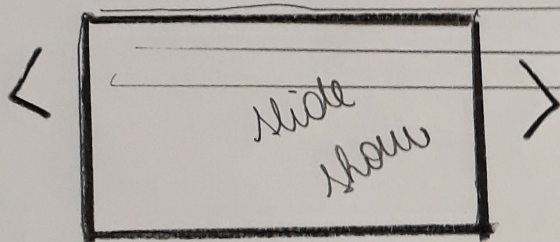 slide
show